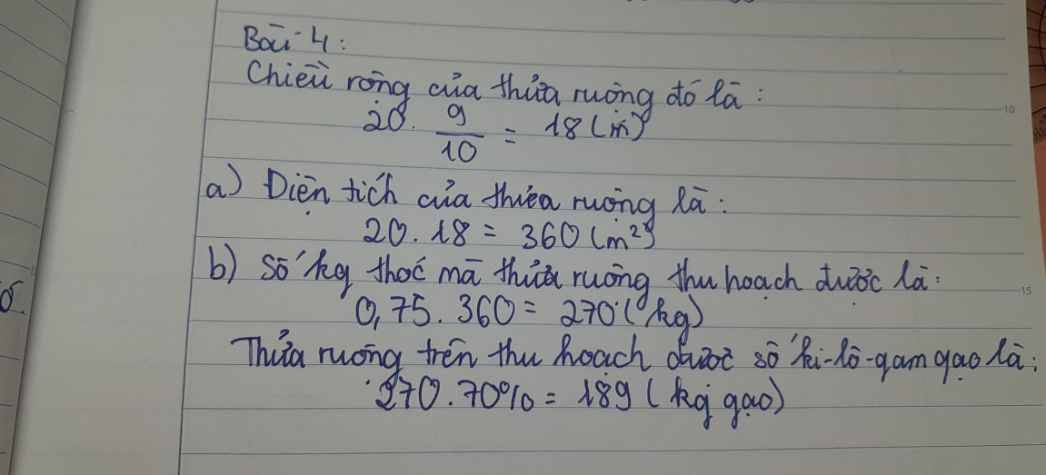 Bài 4:
Chiều rộng của thửa ruộng đó là:
20. 9/10 = 18 (m)
a) Diện tích của thửa ruộng là:
20. 18 = 360 (m²)
b) Số kg thóc mà thửa ruộng thu hoạch được là:
0,75. 360 = 270 (kg)
Thửa ruộng trên thu hoạch được số ki-lô-gam gạo là:
270. 70% = 189 (kg gạo)